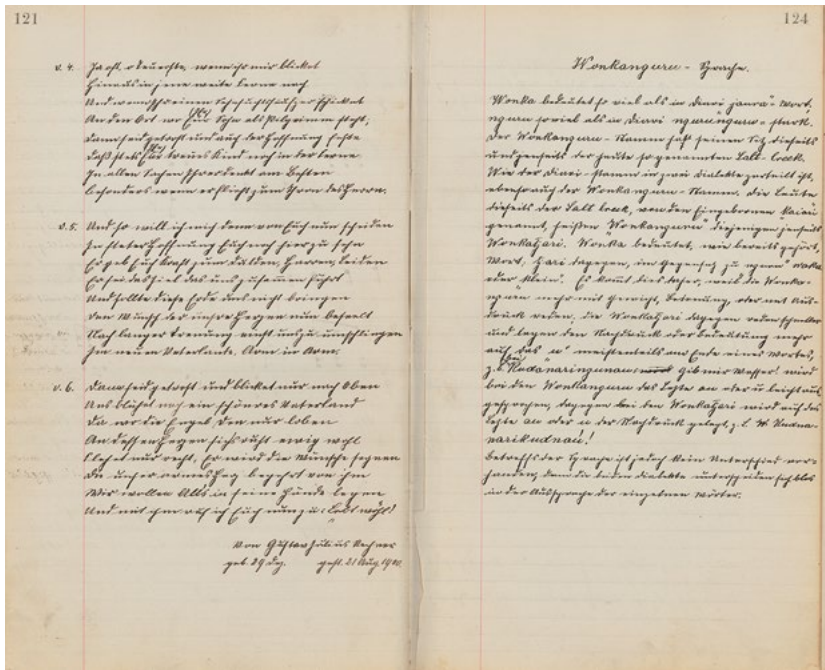 121
v. 4. Ja oft, o teuerste, wenn ihr nur blicket
Hinaus in jene weite Ferne noch
Und wenn
An den Ort wo Eur Sohn als Pilgrim steht,
Dann seid getrost und auch der Hoffnung
Daß stets Eur treues Kind noch in der Ferne
In allen Sachen Ihrer denkt am Besten
besonders wenn er fleht zum Thron des Herrn.
v. 5. Und so will ich mich denn von Euch nun scheiden
In steter Hoffnung Euch noch hier zu sehn
Er geb Euch Kraft zum Dulden, Harren, Leiden
Er sei das Ziel das uns zusammen führt
Und sollte diese Erde uns nicht bringen
den Wunsch der unsre Herzen nun beseelt
Nach langer Trennung uns zu umschlingen
Im neuen Vaterlande, Arm in Arm.
v. 6. Dann seid getrost und blicket nur nach Oben
Uns blühet noch ein schönres Vaterland
Da wo die Engel den nur loben
An dessen Herzen sichs ruht ewig wohl
Flehet nur recht, Er wird die Wünsche segnen
die unser armes Herz begehrt von ihm
Wir wollen Alls in seine Hände legen
Und mit ihm ruf ich Euch nun zu: Lebt wohl!
Von Gustav Julius Rechner
geb. 29 Dez. gest. 21 Aug. 1900.
124
Wonkanguru - Sprache.
Wonka bedeutet so viel als in Diari jaura - Wort,
nguru soviel als in Diari ngurunguru - stark.
Der Wonkanguru - Stamm hat seinen Sitz diesseits
und jenseits der heute sogenannten Salt-Creek.
Wie der Diari-Stamm in zwei Dialekte zerteilt ist,
ebenso auch der Wonkanguru - Stamm. Die Leute
diesseits der Salt Creek, von den Eingebornen
genannt, heißen "Wonkanguru" diejenigen jenseits
Wonkatjari. Wonka bedeutet, wie bereits gehört,
Wort; tjari dagegen, im Gegensatz zu nguru "waka
oder klein". Es kommt dies daher, weil die Wonka-
nguru mehr mit Gewicht, Betonung, oder mit Aus-
druck reden, die Wonkatjari dagegen reden schneller
und legen den Nachdruck oder Bedeutung mehr
auf das "u" meistenteils am Ende eines Wortes,
z.b. gib mir Wasser! wird
bei den Wonkanguru das Letzte au oder u leicht aus
gesprochen, dagegen bei den Wonkatjari wird auf das
Letzte au oder u der Nachdruck gelegt, z.b.
Betreffs der Sprache ist jedoch kein Unterschied vor-
handen, denn die beiden Dialekte unterscheiden sich blos
in der Aussprache der einzelnen Wörter.